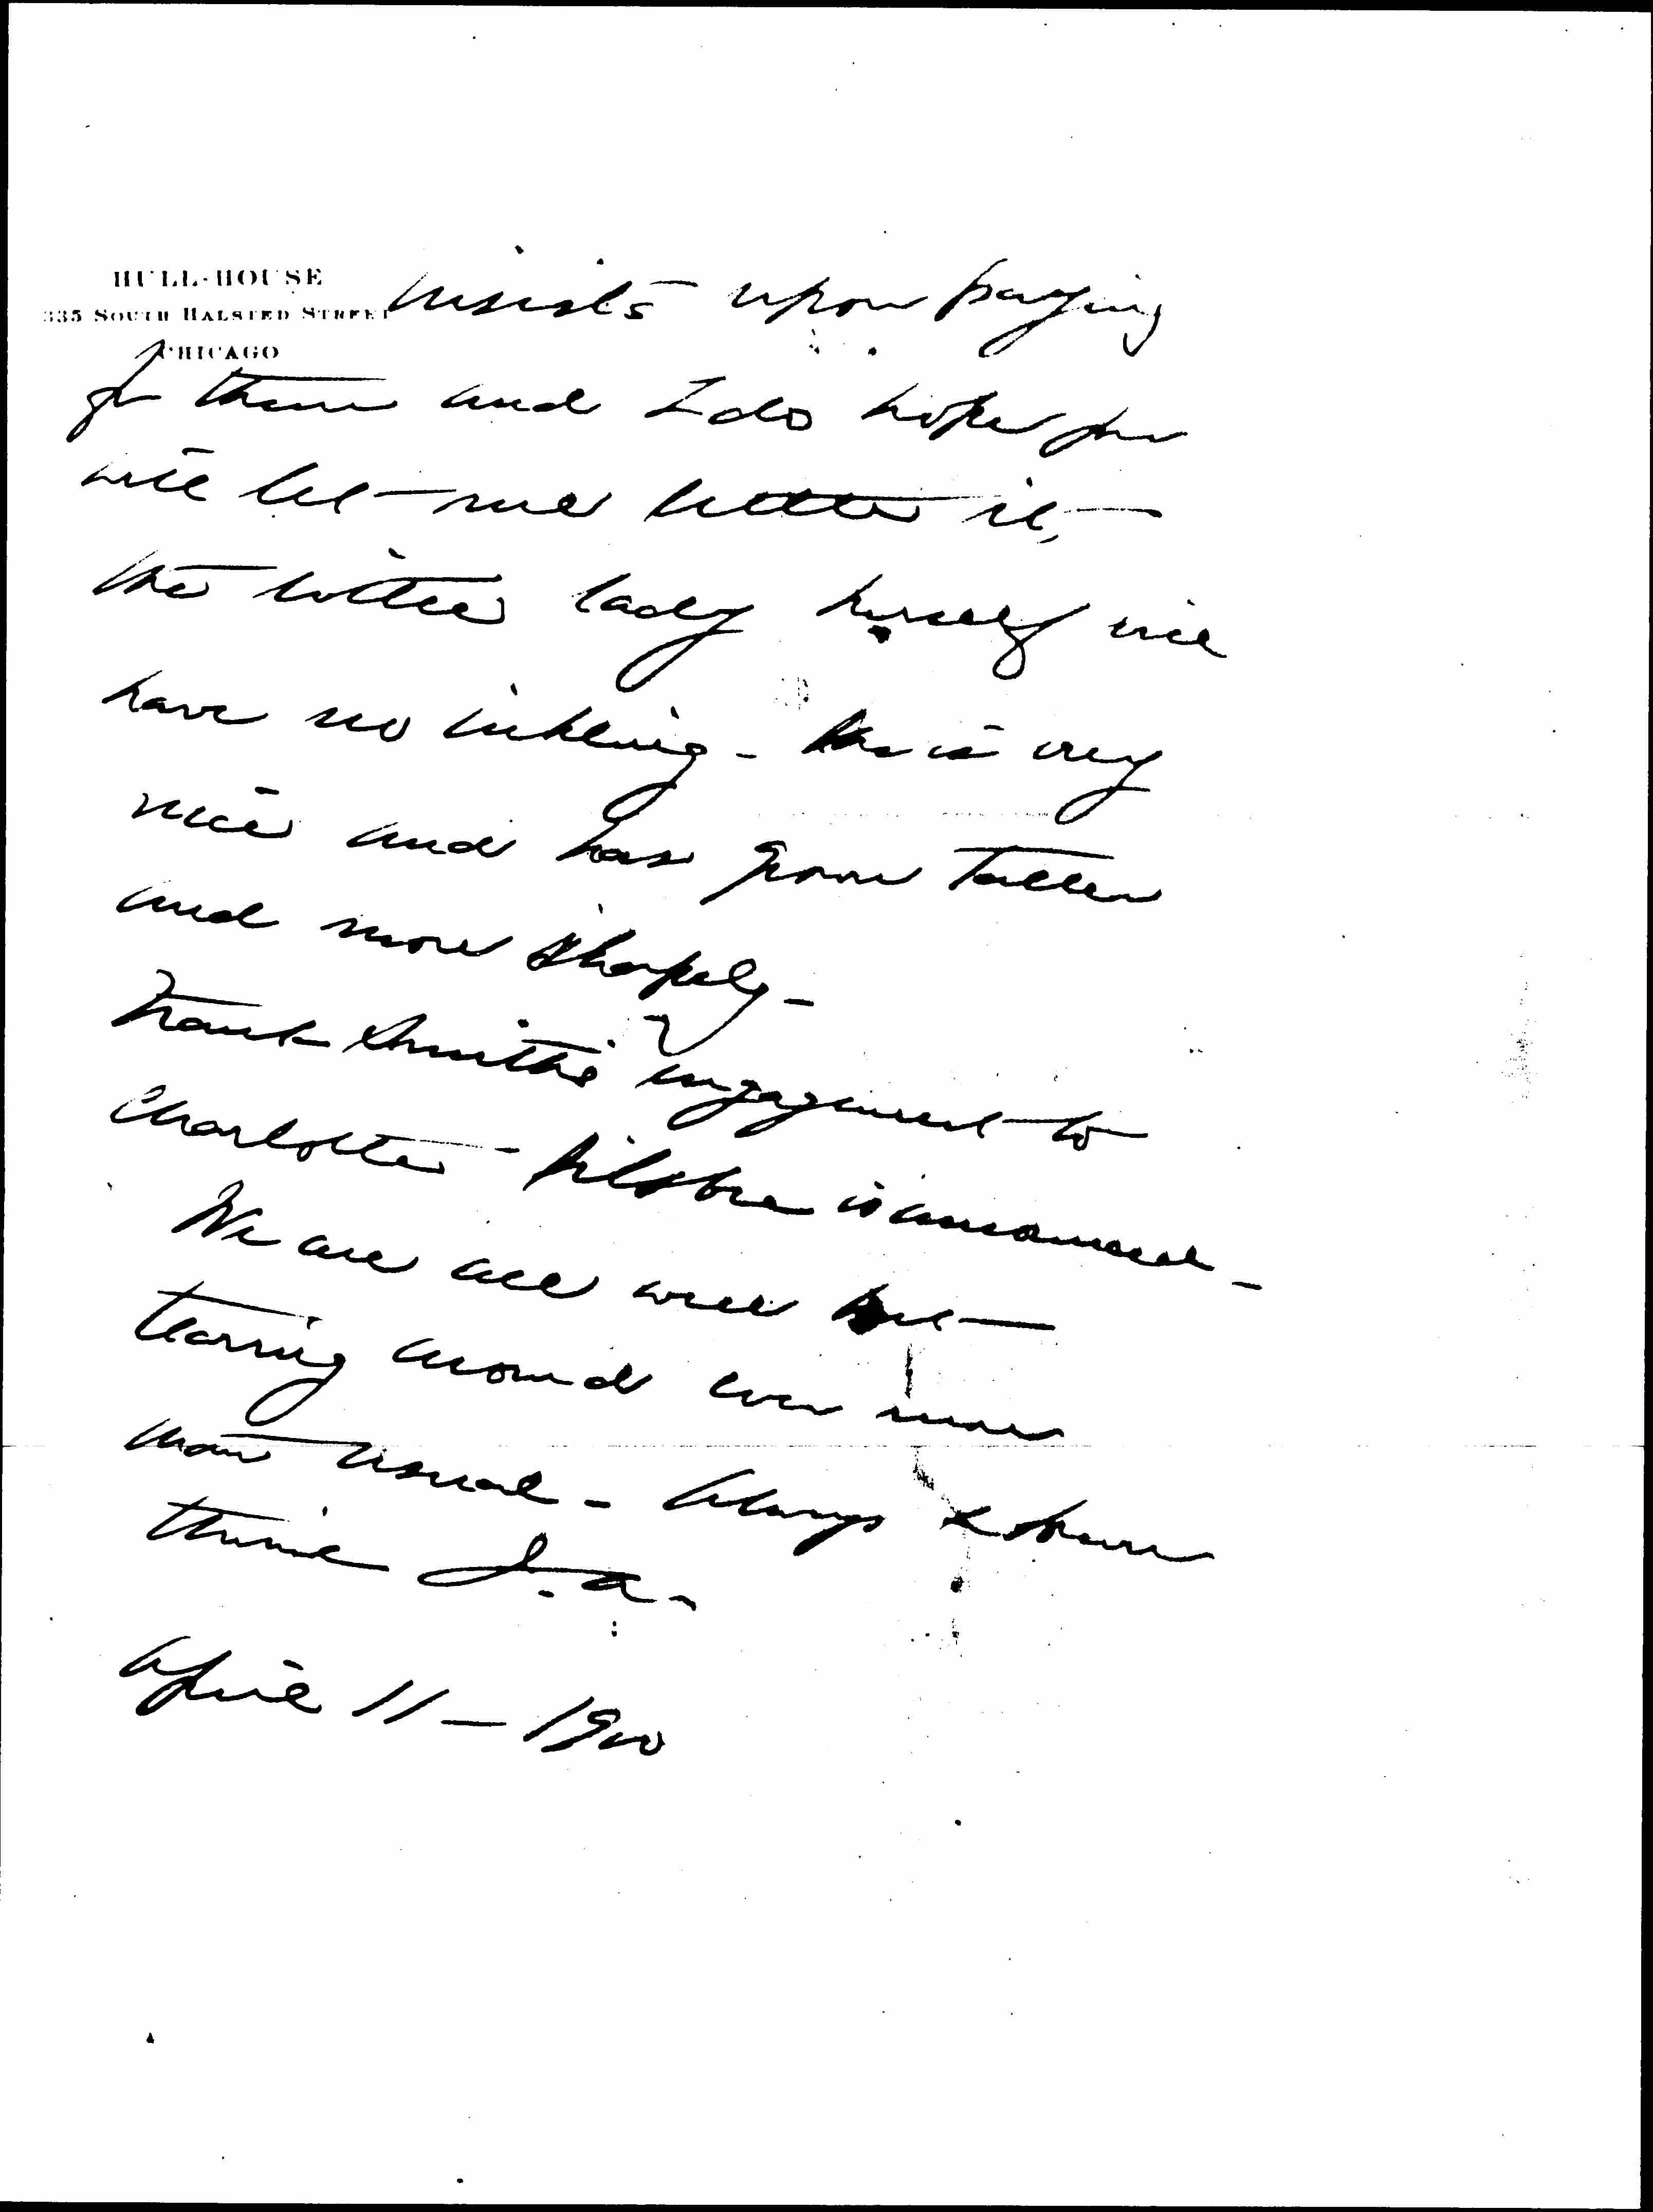 HULL-HOUSE
335 SOUTH HALSTED STREET
CHICAGO
insists upon paying
for them and I do hope you
will let me settle it,
the little lady herself will
have no inkling - She is very
nice and has grown taller
and more shapely -
Frank Smith's engagement to
Charlotte is announced -
We are all well but
tearing around even more
than usual - Always & forever
thine J. A.
April 11 - 1900